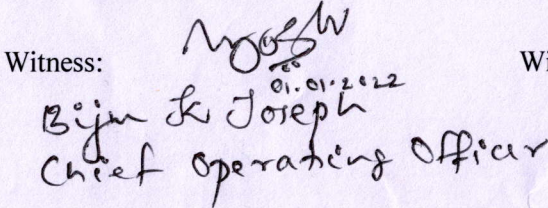 Witness: Wi
01.01.2022
Biju K Joseph
Chief Operating Officer